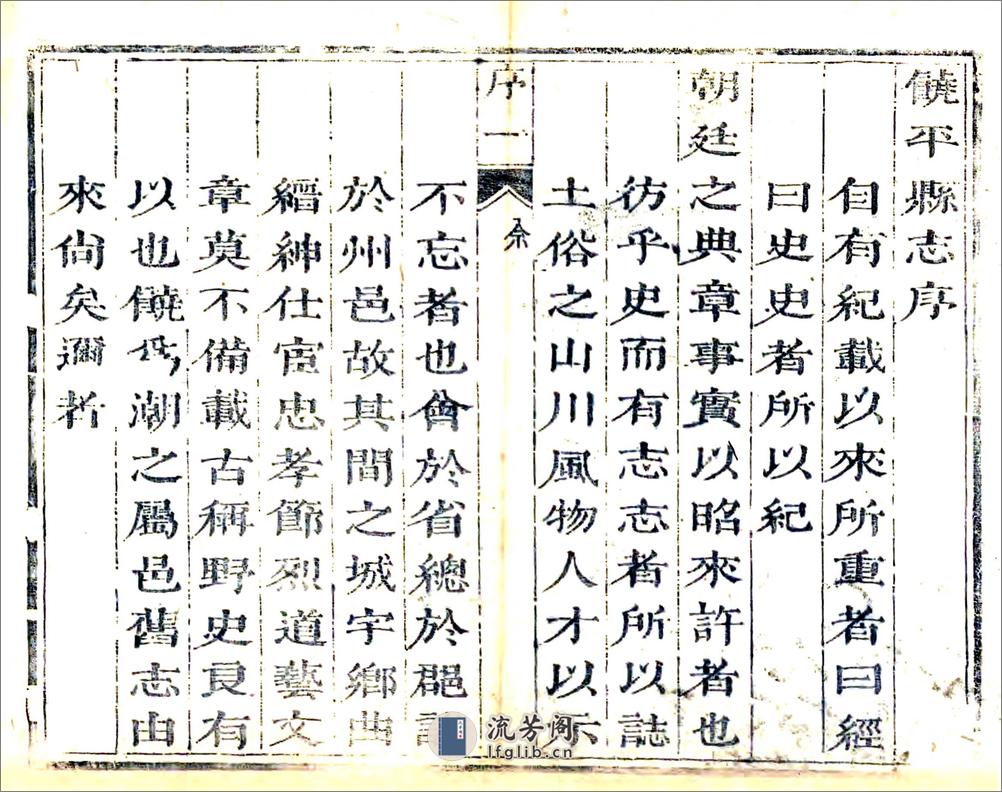 饒平縣志序
自有紀載以來所重者曰經
曰史史者所以紀
朝廷之典章事實以昭來許者也
彷乎史而有志志者所以誌
土俗之山川風物人才以示
序一
不忘者也會於省總於郡詳
於州邑故其間之城宇鄉曲
縉紳仕宦忠孝節烈道藝文
章莫不備載古稱野史良有
以也饒爲潮之屬邑舊志由
來尙矣邇者
流芳阁
lfglib.cn